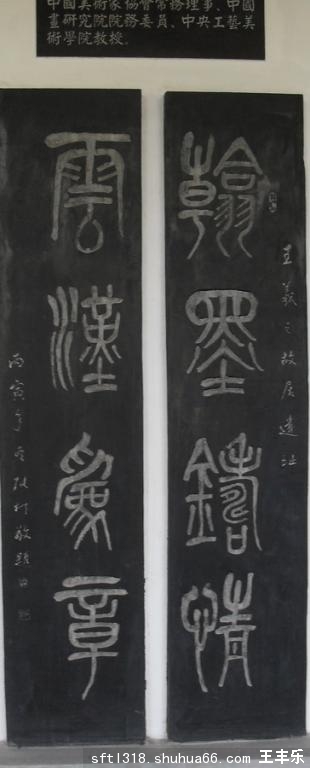 中國美術家協會常務理事、中國
畫研究院院務委員、中央工藝美
術學院教授。
翰墨鑄情
王羲之故居遺址
雲漢為章
丙寅年 張仃敬題
sftl318.shuhua66.com 王丰乐